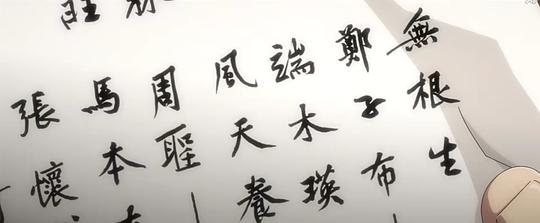 無根生
鄭子布
端木瑛
風天養
周聖
馬本
張懷